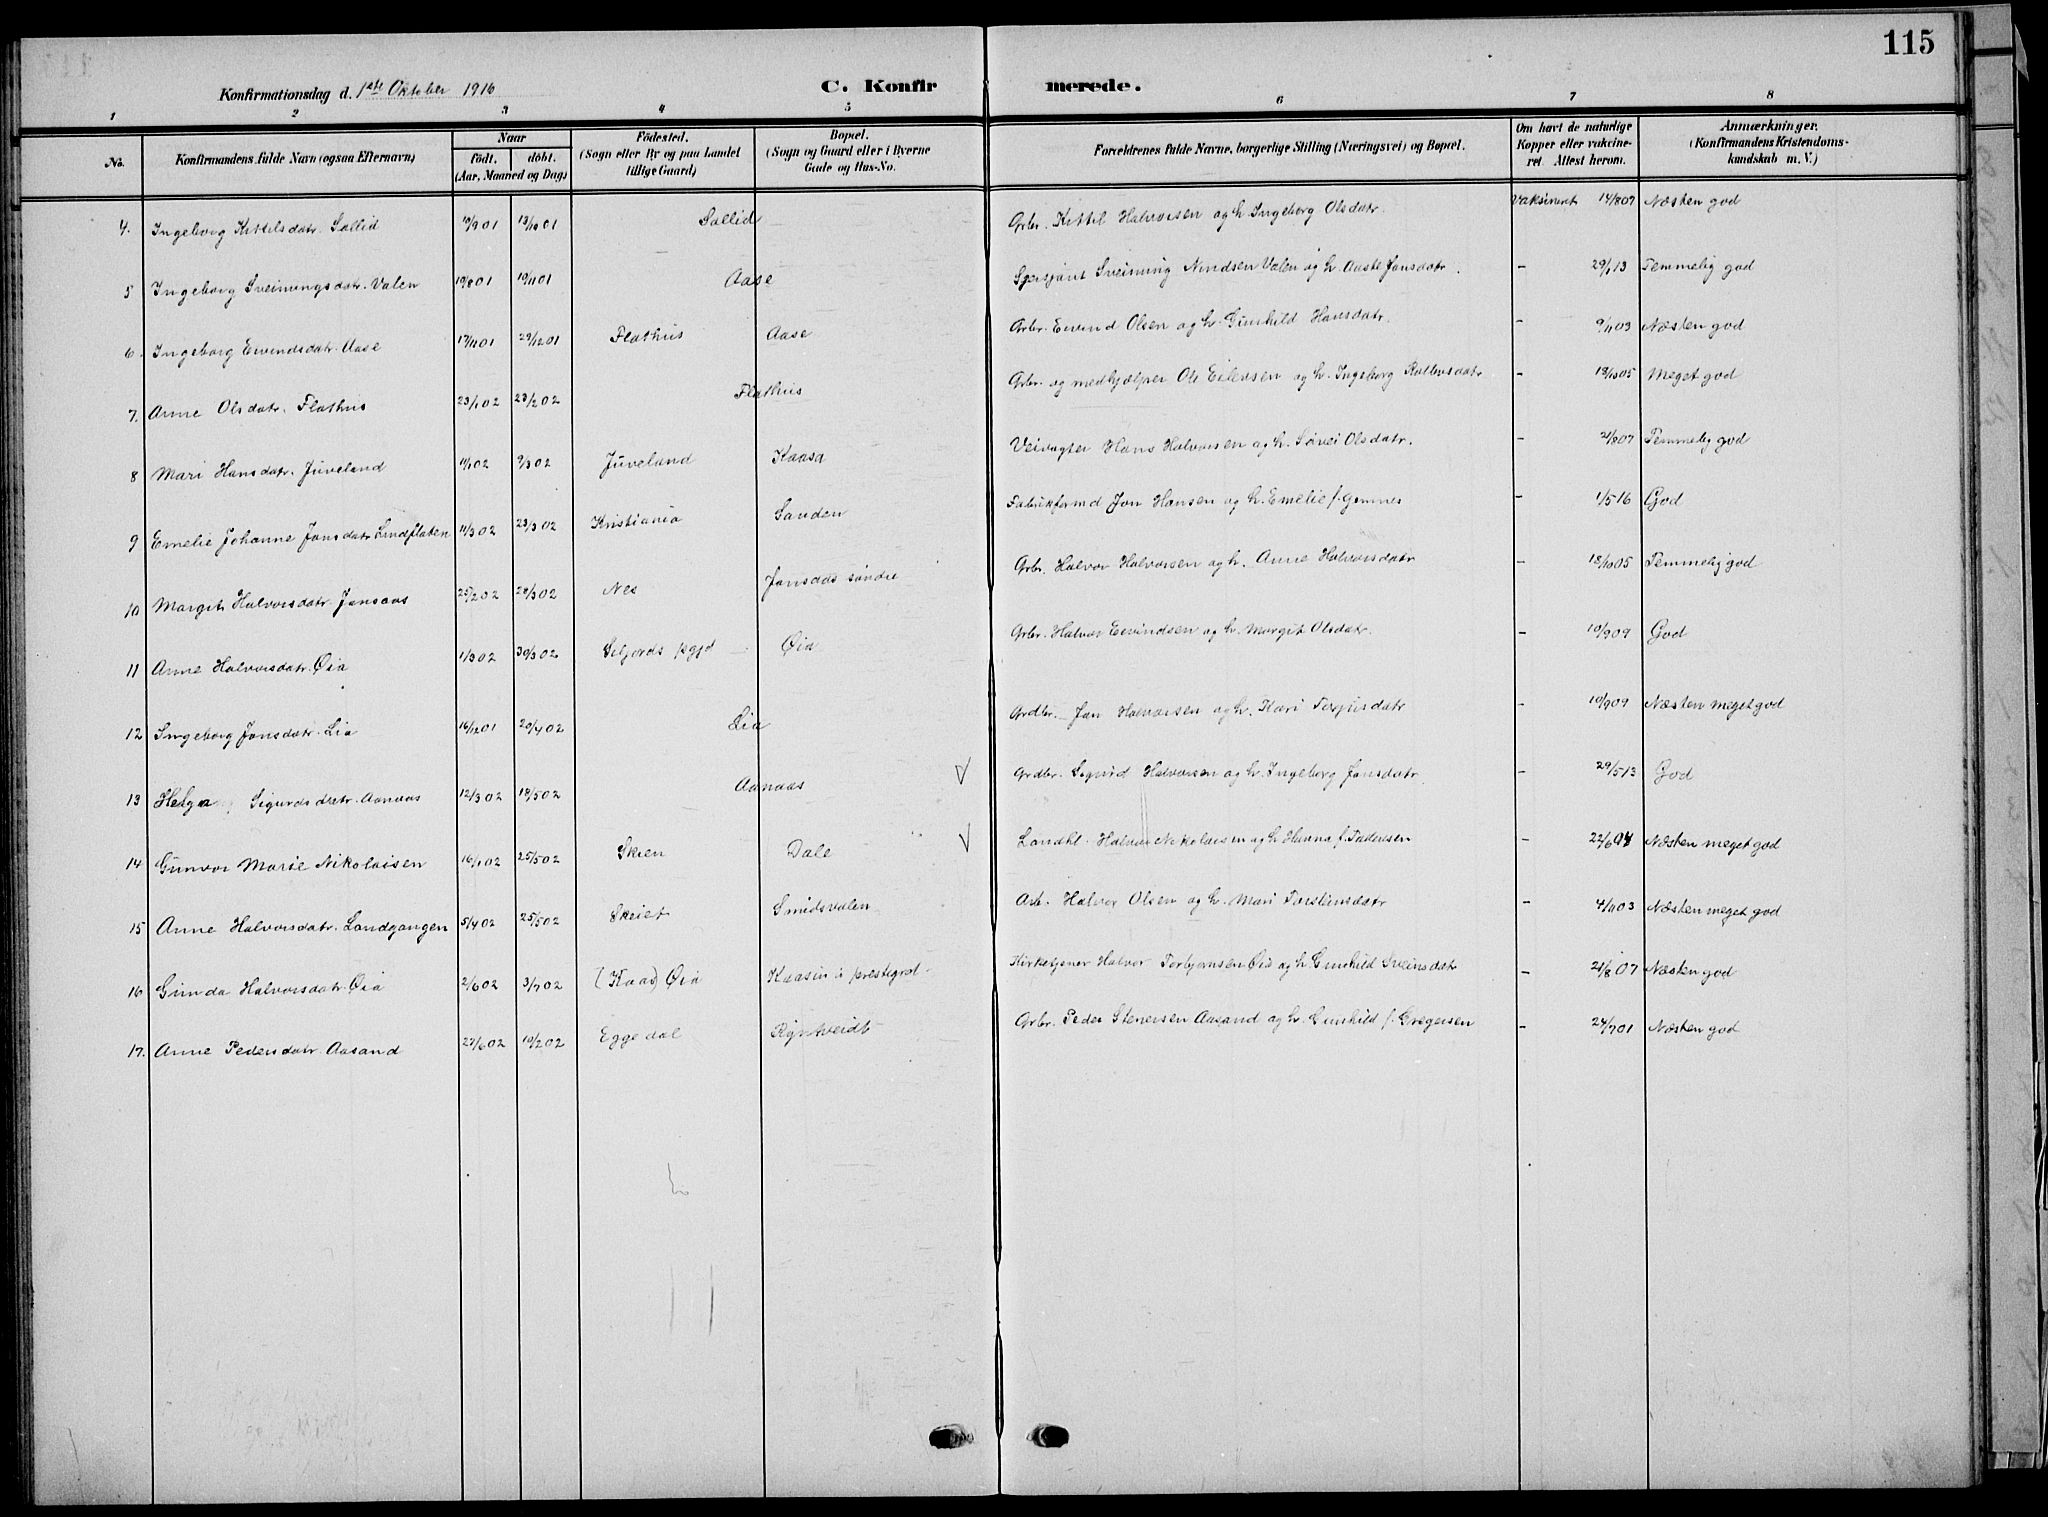 115
Konfirmationsdag d. 1ste Oktober 1916 C. Konfirmerede.
1 2 3 4 5 6 7 8
No. Konfirmandens fulde Navn (ogsaa Efternavn) Naar födt. döbt. (Aar, Maaned og Dag) Födested. (Sogn eller By og paa Landet tillige Gaard) Bopæl. (Sogn og Gaard eller i Byerne Gade og Hus-No. Forældrenes fulde Navne, borgerlige Stilling (Næringsvei) og Bopæl. Om havt de naturlige Kopper eller vakcineret Attest herom. Anmærkninger. (Konfirmandens Kristendomskundskab m. V.)
4. Ingeborg Kittilsdatr. Sollid 19/9 01 13/10 01 Sollid Grbr. Kittil Halvorsen og h. Ingeborg Olsdatr. Vaksineret 14/8 07 Næsten god
5 Ingeborg Sveinungsdatr. Valen 19/8 01 10/11 01 Aase Sersjant Sveinung Nendsen Valen og h. Aaste Jonsdatr. - 29/1 13 Temmelig god
6. Ingeborg Eivindsdatr. Aase 17/11 01 29/12 01 Flathus Aase Grbr. Eivind Olsen og h. Gunhild Hansdatr. - 9/11 03 Næsten god
7. Anne Olsdatr. Flathus 23/1 02 23/2 02 Flathus Grbr. og medhjælper Ole Eilevsen og h. Ingeborg - 18/10 05 Meget god
8 Mari Hansdatr. Juveland 11/1 02 9/3 02 Juveland Kaasa Veivogter Hans Halvorsen og h. Olsdatr. - 21/8 07 Temmelig god
9 Emelie Johanne Jonsdatr. Lindflaten 11/3 02 23/3 02 Kristiania Sanden Fabrikformd Jon Hansen og h. Emelie f. - 1/5 16 God
10 Margit Halvorsdatr. Jonsaas 25/2 02 28/3 02 Nes Jonsaas söndre Grbr. Halvor Halvorsen og h. Anne Halvorsdatr - 18/10 05 Temmelig god
11 Anne Halvorsdatr. Øia 1/3 02 30/3 02 Seljords pgjd - Øia Grbr. Halvor Eivindsen og h. Margit Olsdatr. - 10/9 09 God
12 Ingeborg Jonsdatr. Lia 16/12 01 20/4 02 Lia Grdbr. Jon Halvorsen og h. Kari Torjusdatr - 10/9 09 Næsten meget god
13 Helga Sigurdsdatr. Aanaas 12/3 02 18/5 02 Aanaas Grdbr. Sigurd Halvorsen og h. Ingeborg Jonsdatr - 29/5 13 God
14 Gunvor Marie Nikolaisen 16/1 02 25/5 02 Skien Dale Landhl. Halvor Nikolaisen og h. Hanna f. - 22/6 04 Næsten meget god
15 Anne Halvorsdatr. Landgangen 5/4 02 25/5 02 Skeiet Smidsvalen Arb. Halvor Olsen og h. Mari Torstensdatr - 4/11 03 Næsten meget god
16 Gunda Halvorsdatr. Øia 2/6 02 3/7 02 (Kaas) Øia Kaasin i prestegrd. Kirketjener Halvor Torbjornsen Øia og h. Gunhild Sveinsdatr - 21/8 07 Næsten god
17. Anne Pedersdatr. Aasand 27/6 02 10/2 02 Eggedal Grbr. Peder Stenersen Aasand og h. Gunhild f. Gregersen - 24/7 01 Næsten god